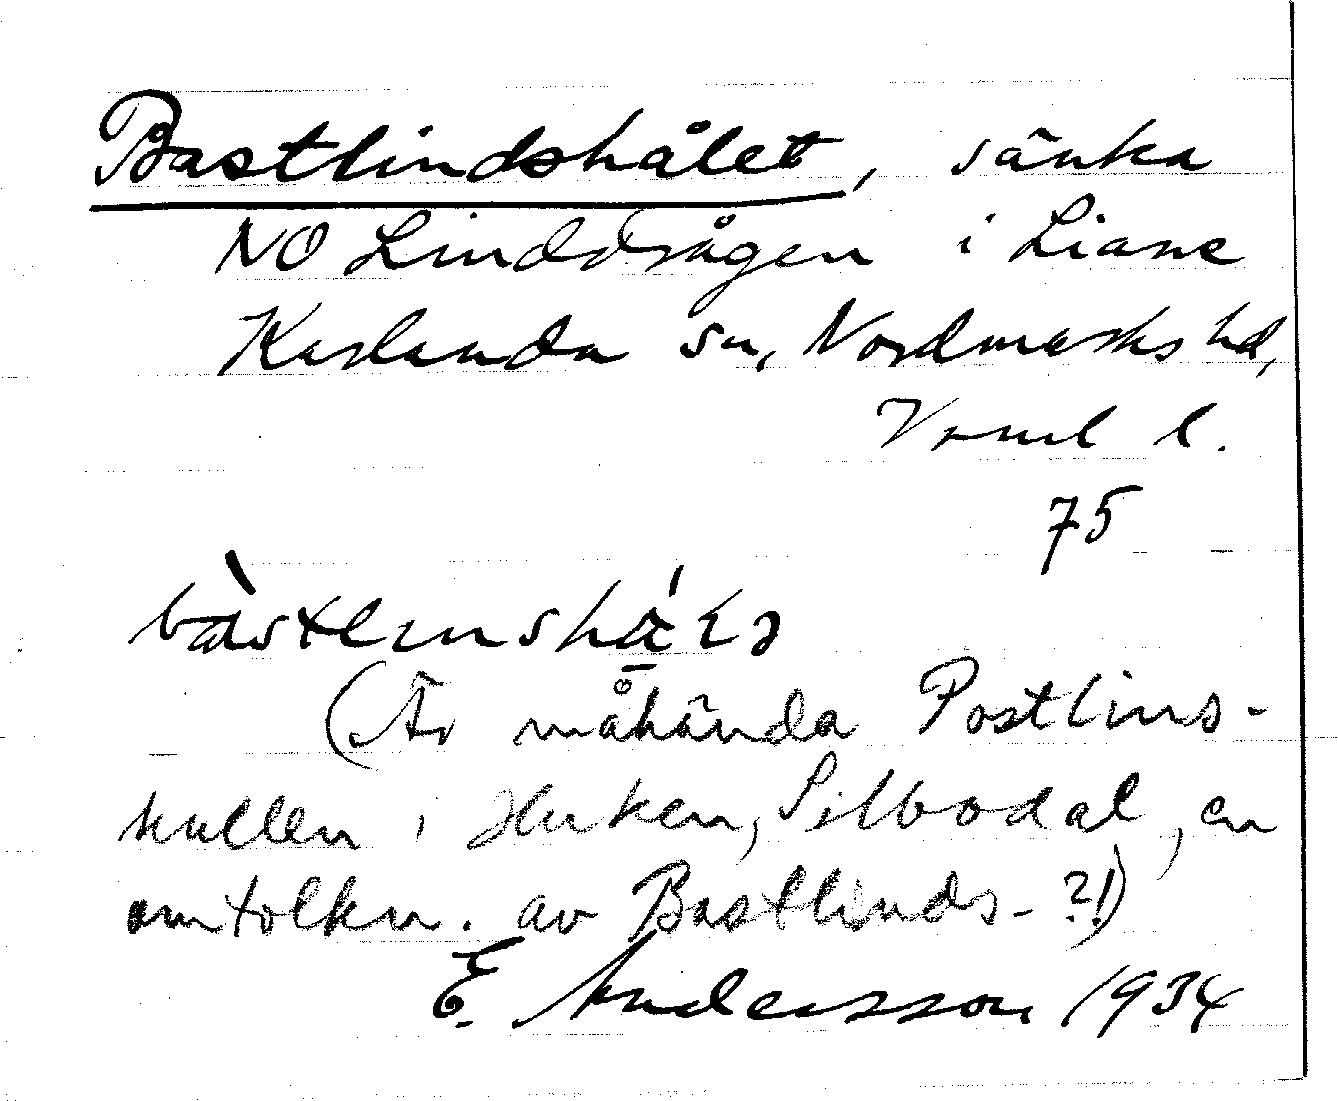 Bastlindshålet, sänka
NO Linddrågen i Liane
Karlanda sn, Nordmarks hd,
Vrml l.
75
(Är måhända Postlins-
kullen i Hurken, Silbodal, en
omtolkn. av Bastlinds- ?!)
E. Andersson 1934